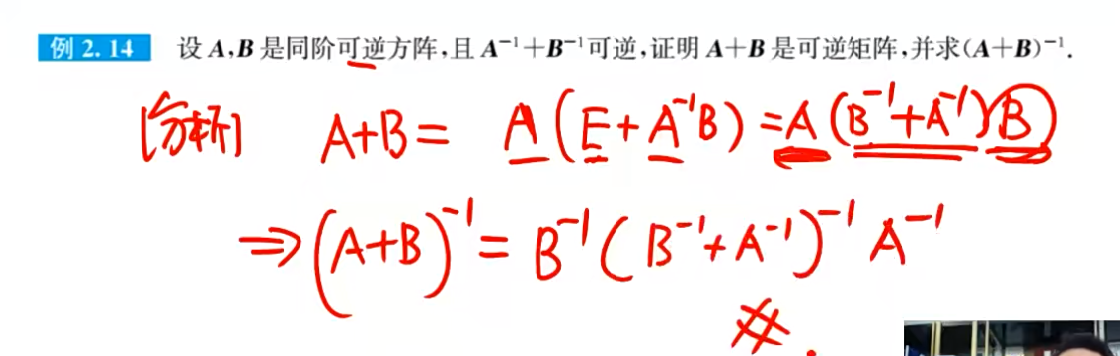 例 2.14 设 A,B 是同阶可逆方阵,且 A⁻¹+B⁻¹可逆,证明 A+B 是可逆矩阵,并求(A+B)⁻¹.
[分析] A+B= A(E+A⁻¹B)=A(B⁻¹+A⁻¹)B)
⇒(A+B)⁻¹=B⁻¹(B⁻¹+A⁻¹)⁻¹A⁻¹
#.